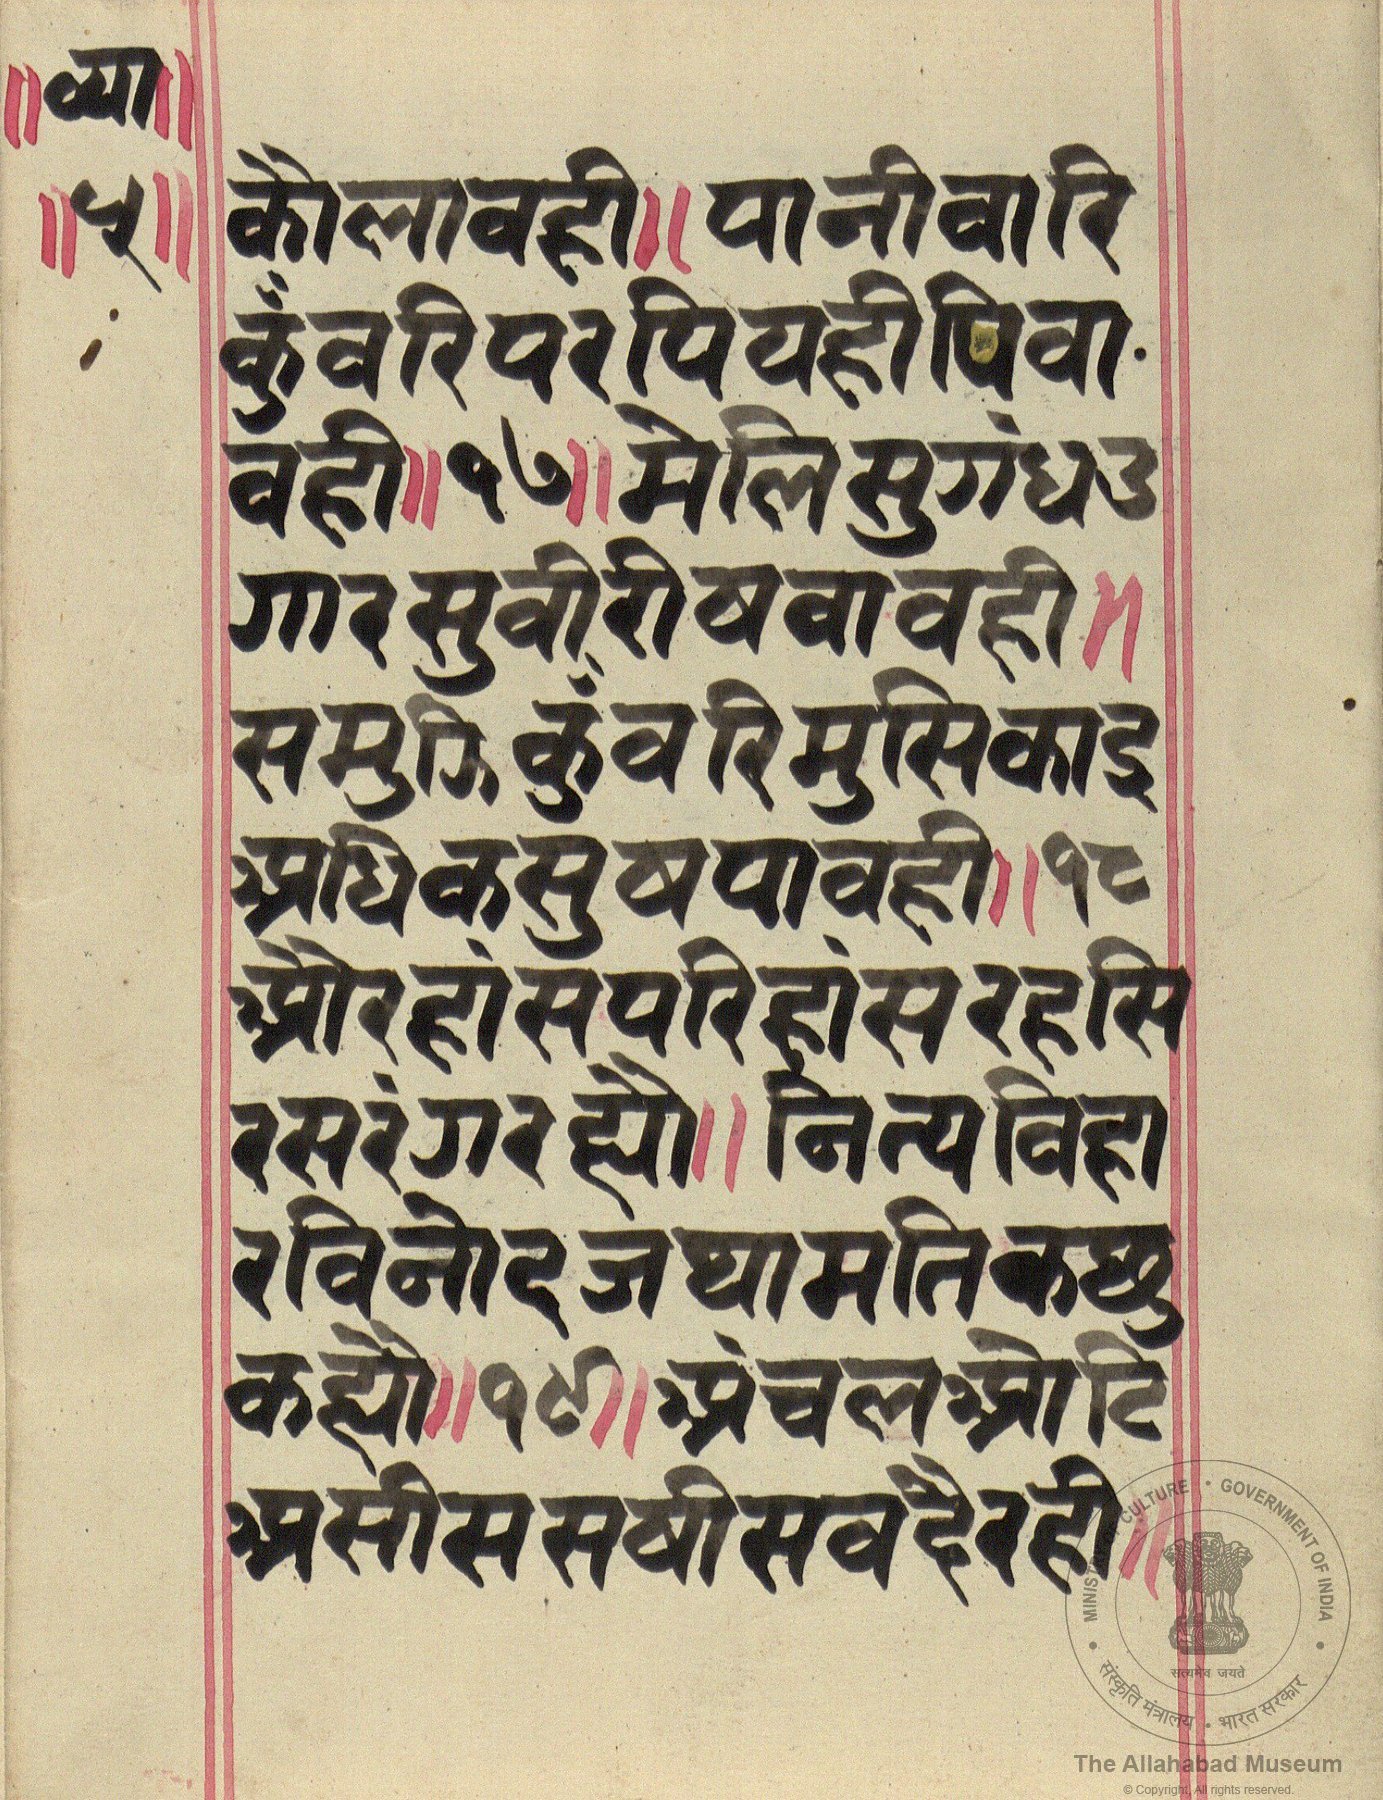 ॥व्या॥
॥५॥
कौलावही॥पानीवारि
कुंवरिपरपियहीपिवा
वही॥१७॥मेलिसुगंधउ
गारसुवीरीषवावही॥
समुझिकुंवरिमुसिकाइ
अधिकसुषपावही॥१८
औरहांसपरिहांसरहसि
रसरंगरह्यौ॥नित्यविहा
रविनोदजथामतिकछु
कह्यौ॥१९॥अंचलओटि
असीससषीसवदैरही॥
MINISTRY OF CULTURE • GOVERNMENT OF INDIA
सत्यमेव जयते
संस्कृति मंत्रालय • भारत सरकार
The Allahabad Museum
© Copyright, All rights reserved.